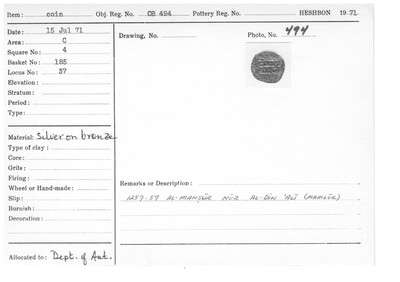 Item: coin Obj. Reg. No. OB 494 Pottery Reg. No. HESHBON 19 71
Date: 15 Jul 71 Drawing, No. Photo, No. 494
Area: C
Square No: 4
Basket No: 185
Locus No: 37
Elevation:
Stratum:
Period:
Type:
Material: Silver on bronze
Type of clay:
Core:
Grits:
Firing:
Wheel or Hand-made: Remarks or Description:
Slip: 1257-59 AL-MANṢŪR NŪR AL-DĪN ʿALĪ (MAMLŪK)
Burnish:
Decoration:
Allocated to: Dept. of Ant.